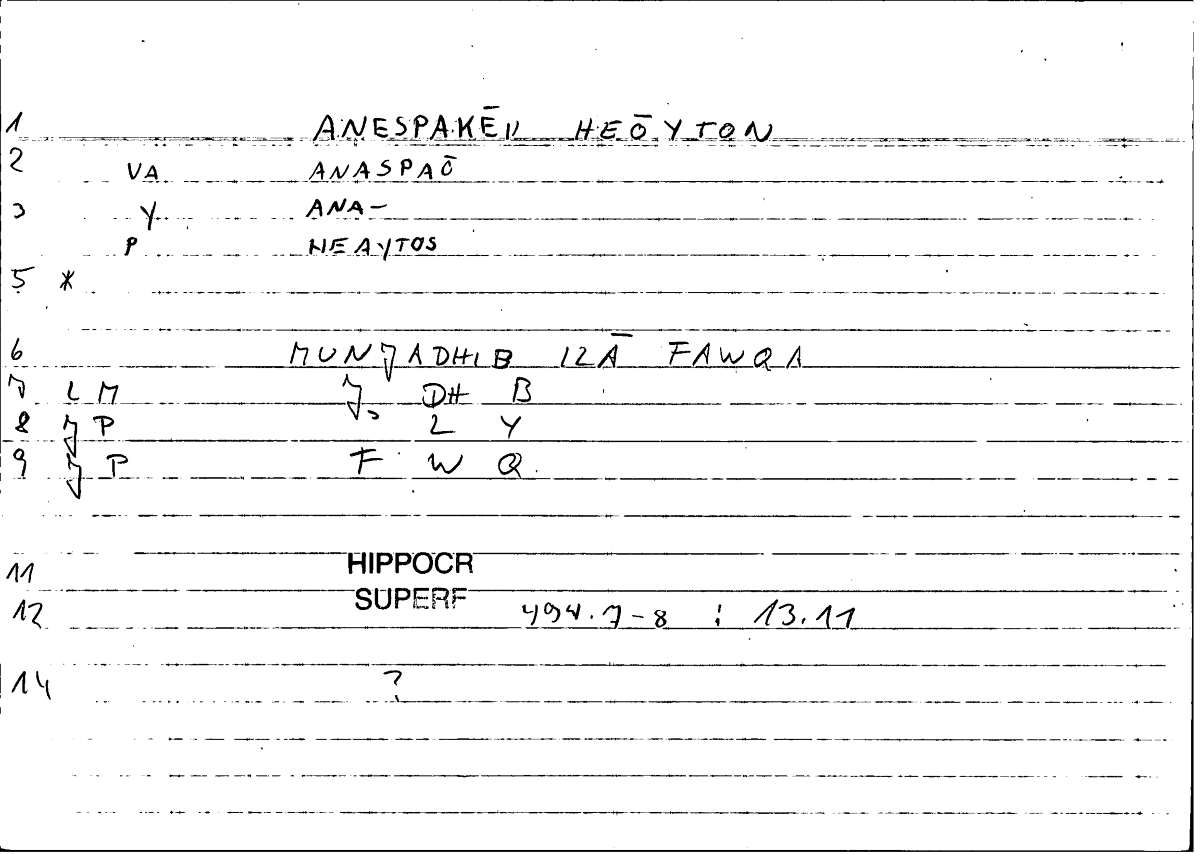 1 ANESPAKĒ// HEŌYTON
2 VA ANASPAŌ
3 Y ANA-
P HEAYTOS
5 *
6 MUNJADHIB ILĀ FAWQA
7 LM J. DH B
8 JP L Y
9 JP F W Q
11 HIPPOCR
12 SUPERF 494.7-8 : 13.11
14 ?